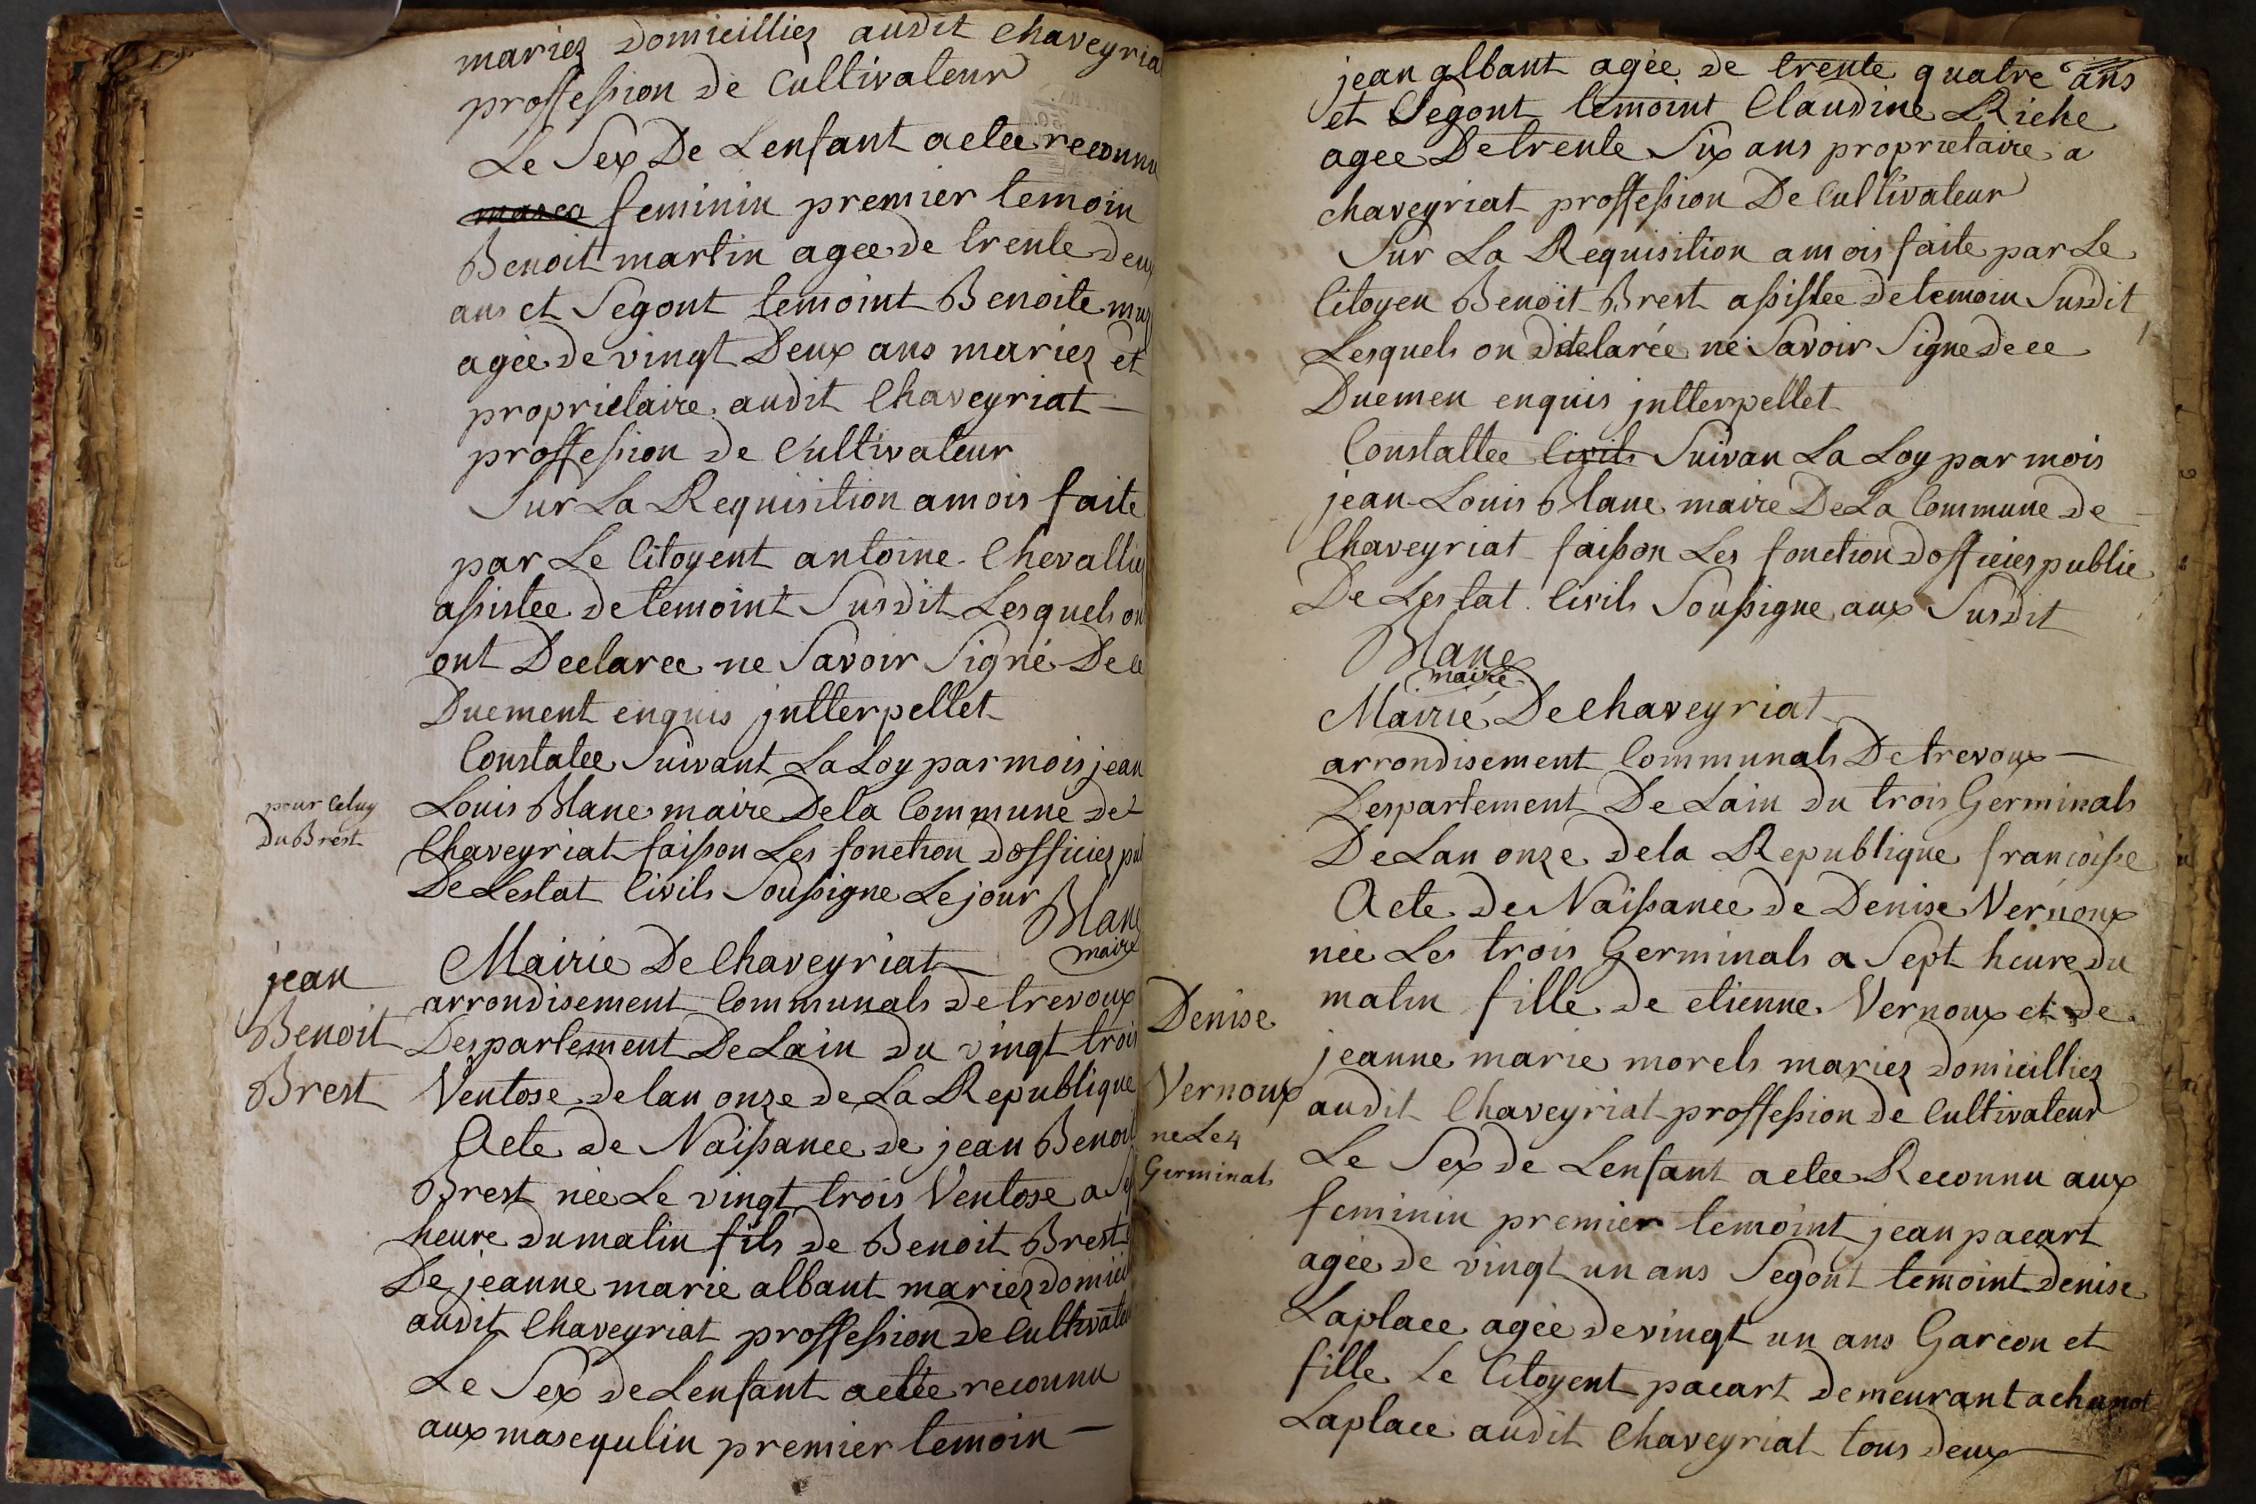 mariez domicilliez audit chaveyria
proffession de Cultivateur
Le Sex De Lenfant aetee reconnu
masco feminin premier temoin
Benoit martin agee de trente deux
ans et Segont temoint Benoite
agée de vingt Deux ans mariez et
proprietaire audit Chaveyriat —
proffession de Cultivateur
Sur La Requisition amois faite
par Le Citoyent antoine Chevallie
assistee de temoint Susdit Lesquels on
ont Declaree ne Savoir Signé De ce
Duement enquis jntterpellet
Constatee Suivant La Loy par mois jean
pour Celuy
Du Brest
Louis Blanc maire De la Commune de
Chaveyriat faisson Les fonction dofficiez pu
De Lestat Civils Soussigne Le jour
Blanc
maire
jean
Benoit
Brest
Mairie De Chaveyriat
arrondisement Communals de trevoux
Despartement De Lain du vingt trois
Ventose de lan onze de La Republique
Acte de Naissance de jean Benoit
Brest née Le vingt trois Ventose a Se
heure du matin fils de Benoit Brest
De jeanne marie albant mariez domici
audit Chaveyriat proffession de Cultivateu
Le Sex de Lenfant aetée reconnu
aux masequlin premier temoin —
jean albant agée de trente quatre ans
et Segont temoint Claudine Riche
agee De trente Six ans proprietaire a
chaveyriat proffession De Cultivateur
Sur La Requisition amois faite par Le
Citoyen Benoit Brest assistee de temoin Susdit
Lesquels on ditelarée ne Savoir Signe De ce
Duemen enquis jntterpellet
Constattee Civils Suivan La Loy par mois
jean Louis Blanc maire De La Commune de
Chaveyriat faisson Les fonction dofficiez public
De Lestat Civils Soussigne aux Susdit
Blanc
maire
Mairie De Chaveyriat
arrondisement Communals De trevoux —
Despartement De Lain du trois Germinals
De Lan onze de la Republique francoisse
Acte de Naissance de Denise Vernoux
née Les trois Germinals a Sept heure du
Denise
Vernoux
ne Le 4
Germinals
matin fille de etienne Vernoux et de
jeanne marie morels mariez domicilliez
audit Chaveyriat proffession de Cultivateur
Le Sex de Lenfant aetee Reconnu aux
feminin premier temoint jean pacart
agée de vingt un ans Segont temoint denise
Laplace agée de vingt un ans Garcon et
fille Le Citoyent pacart demeurant a
Laplace audit Chaveyriat tous deux